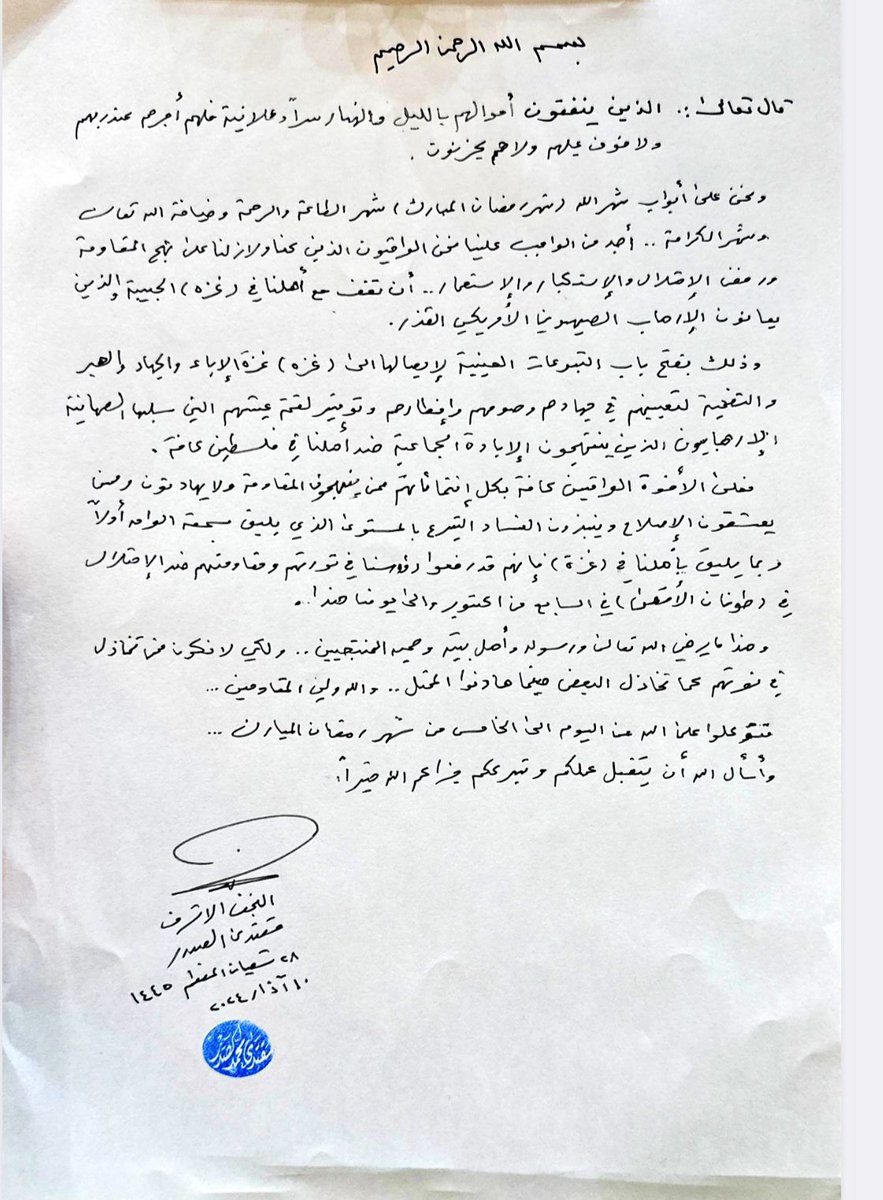 بسم الله الرحمن الرحيم
قال تعالى: الذين ينفقون أموالهم بالليل والنهار سراً وعلانية فلهم أجرهم عند ربهم
ولا خوف عليهم ولا هم يحزنون .
ونحن على أبواب شهر الله (شهر رمضان المبارك) شهر الطاعة والرحمة وضيافة الله تعالى
وشهر الكرامة .. أجد من الواجب علينا نحن العراقيون الذين كنا ولازلنا على نهج المقاومة
ورفض الإحتلال والإستكبار والإستعمار .. أن نقف مع أهلنا في (غزه) الحبيبة والذين
يعانون الإرهاب الصهيوني الأمريكي القذر .
وذلك بفتح باب التبرعات العينية لإيصالها الى (غزه) غزة الإباء والجهاد والصبر
والتضحية لتعينهم في جهادهم وصومهم وإفطارهم وتوفير لقمة عيشهم التي سلبها الصهاينة
الإرهابيون الذين ينتهجون الإبادة الجماعية ضد أهلنا في فلسطين كافة .
فعلى الأخوة العراقيين كافة بكل إنتماءاتهم ممن ينتهجون المقاومة ولا يهادنون وممن
يعشقون الإصلاح وينبذون الفساد التبرع بالمستوى الذي يليق بسمعة العراق أولاً
وبما يليق بأهلنا في (غزة) فإنهم قد رفعوا رؤوسنا في ثورتهم ومقاومتهم ضد الإحتلال
في (طوفان الأقصى) في السابع من اكتوبر والى يومنا هذا ..
وهذا ما يرضي الله تعالى ورسوله وأهل بيته وصحبه المنتجبين .. ولكي لا نكون ممن تخاذل
في نصرتهم كما تخاذل البعض حينما هادنوا المحتل .. والله ولي المقاومين ...
فتوكلوا على الله من اليوم الى الخامس من شهر رمضان المبارك ...
وأسأل الله أن يتقبل عملكم وتبرعكم فجزاكم الله خيراً .
النجف الاشرف
مقتدى الصدر
٢٨ شعبان المعظم ١٤٤٥
١٠ آذار ٢٠٢٤